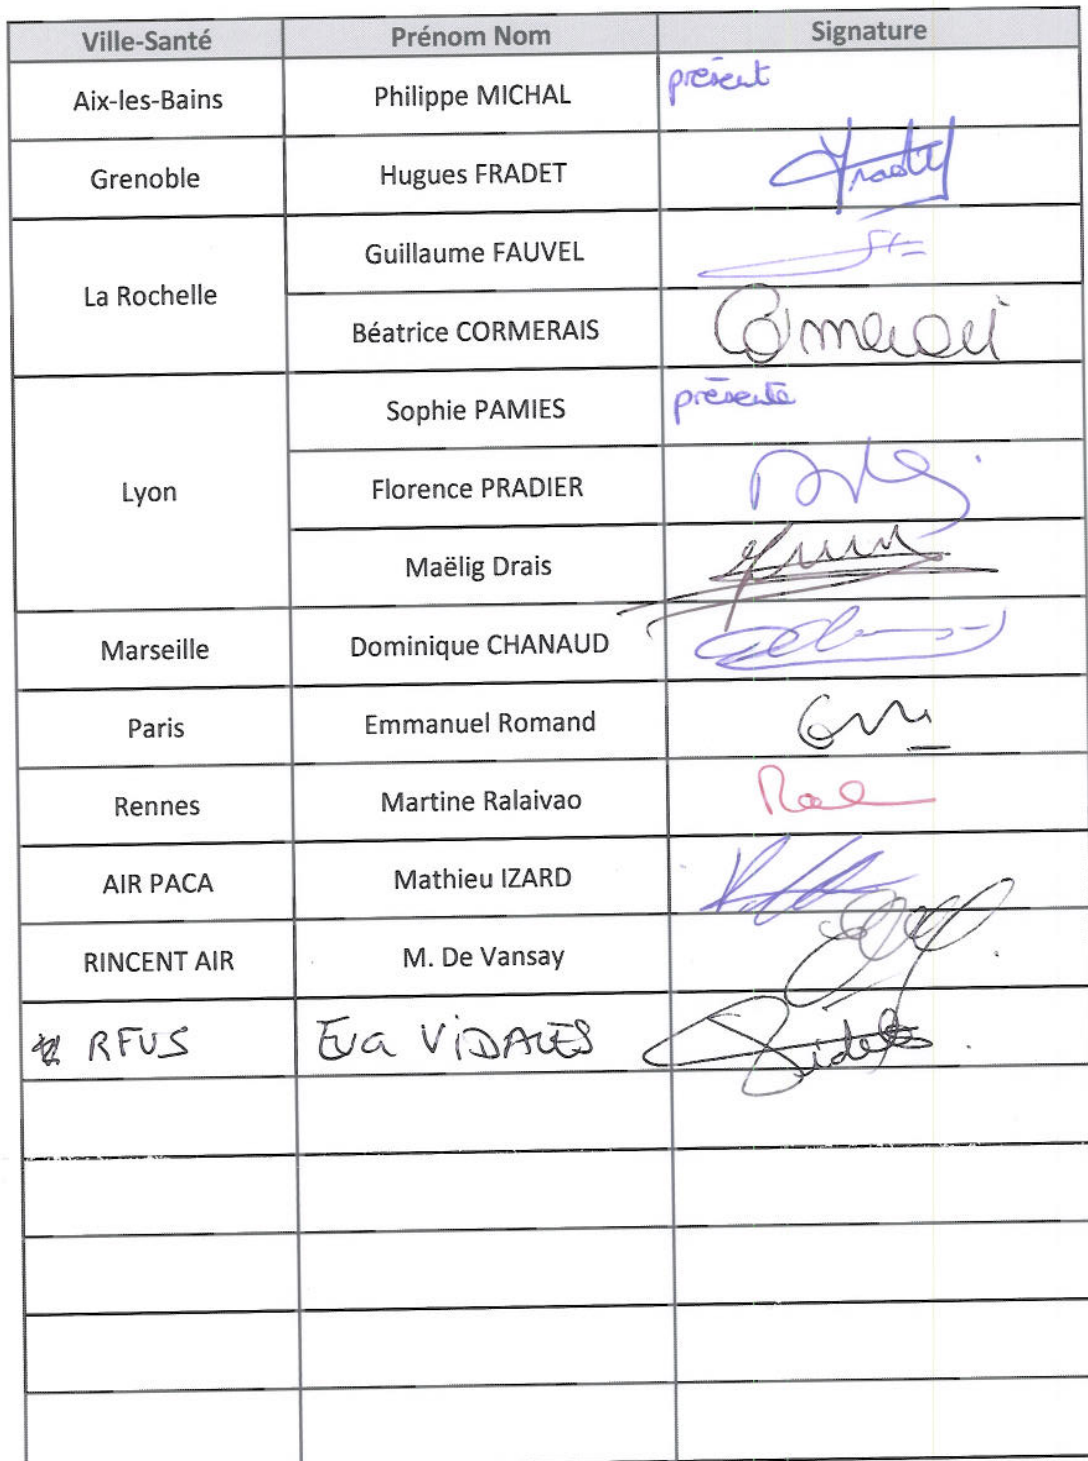 Ville-Santé Prénom Nom Signature
Aix-les-Bains Philippe MICHAL présent
Grenoble Hugues FRADET Fradet
La Rochelle
Guillaume FAUVEL
Béatrice CORMERAIS Cormerais
Lyon
Sophie PAMIES présente
Florence PRADIER
Maëlig Drais
Marseille Dominique CHANAUD
Paris Emmanuel Romand
Rennes Martine Ralaivao
AIR PACA Mathieu IZARD
RINCENT AIR M. De Vansay
RFVS Eva VIDALES